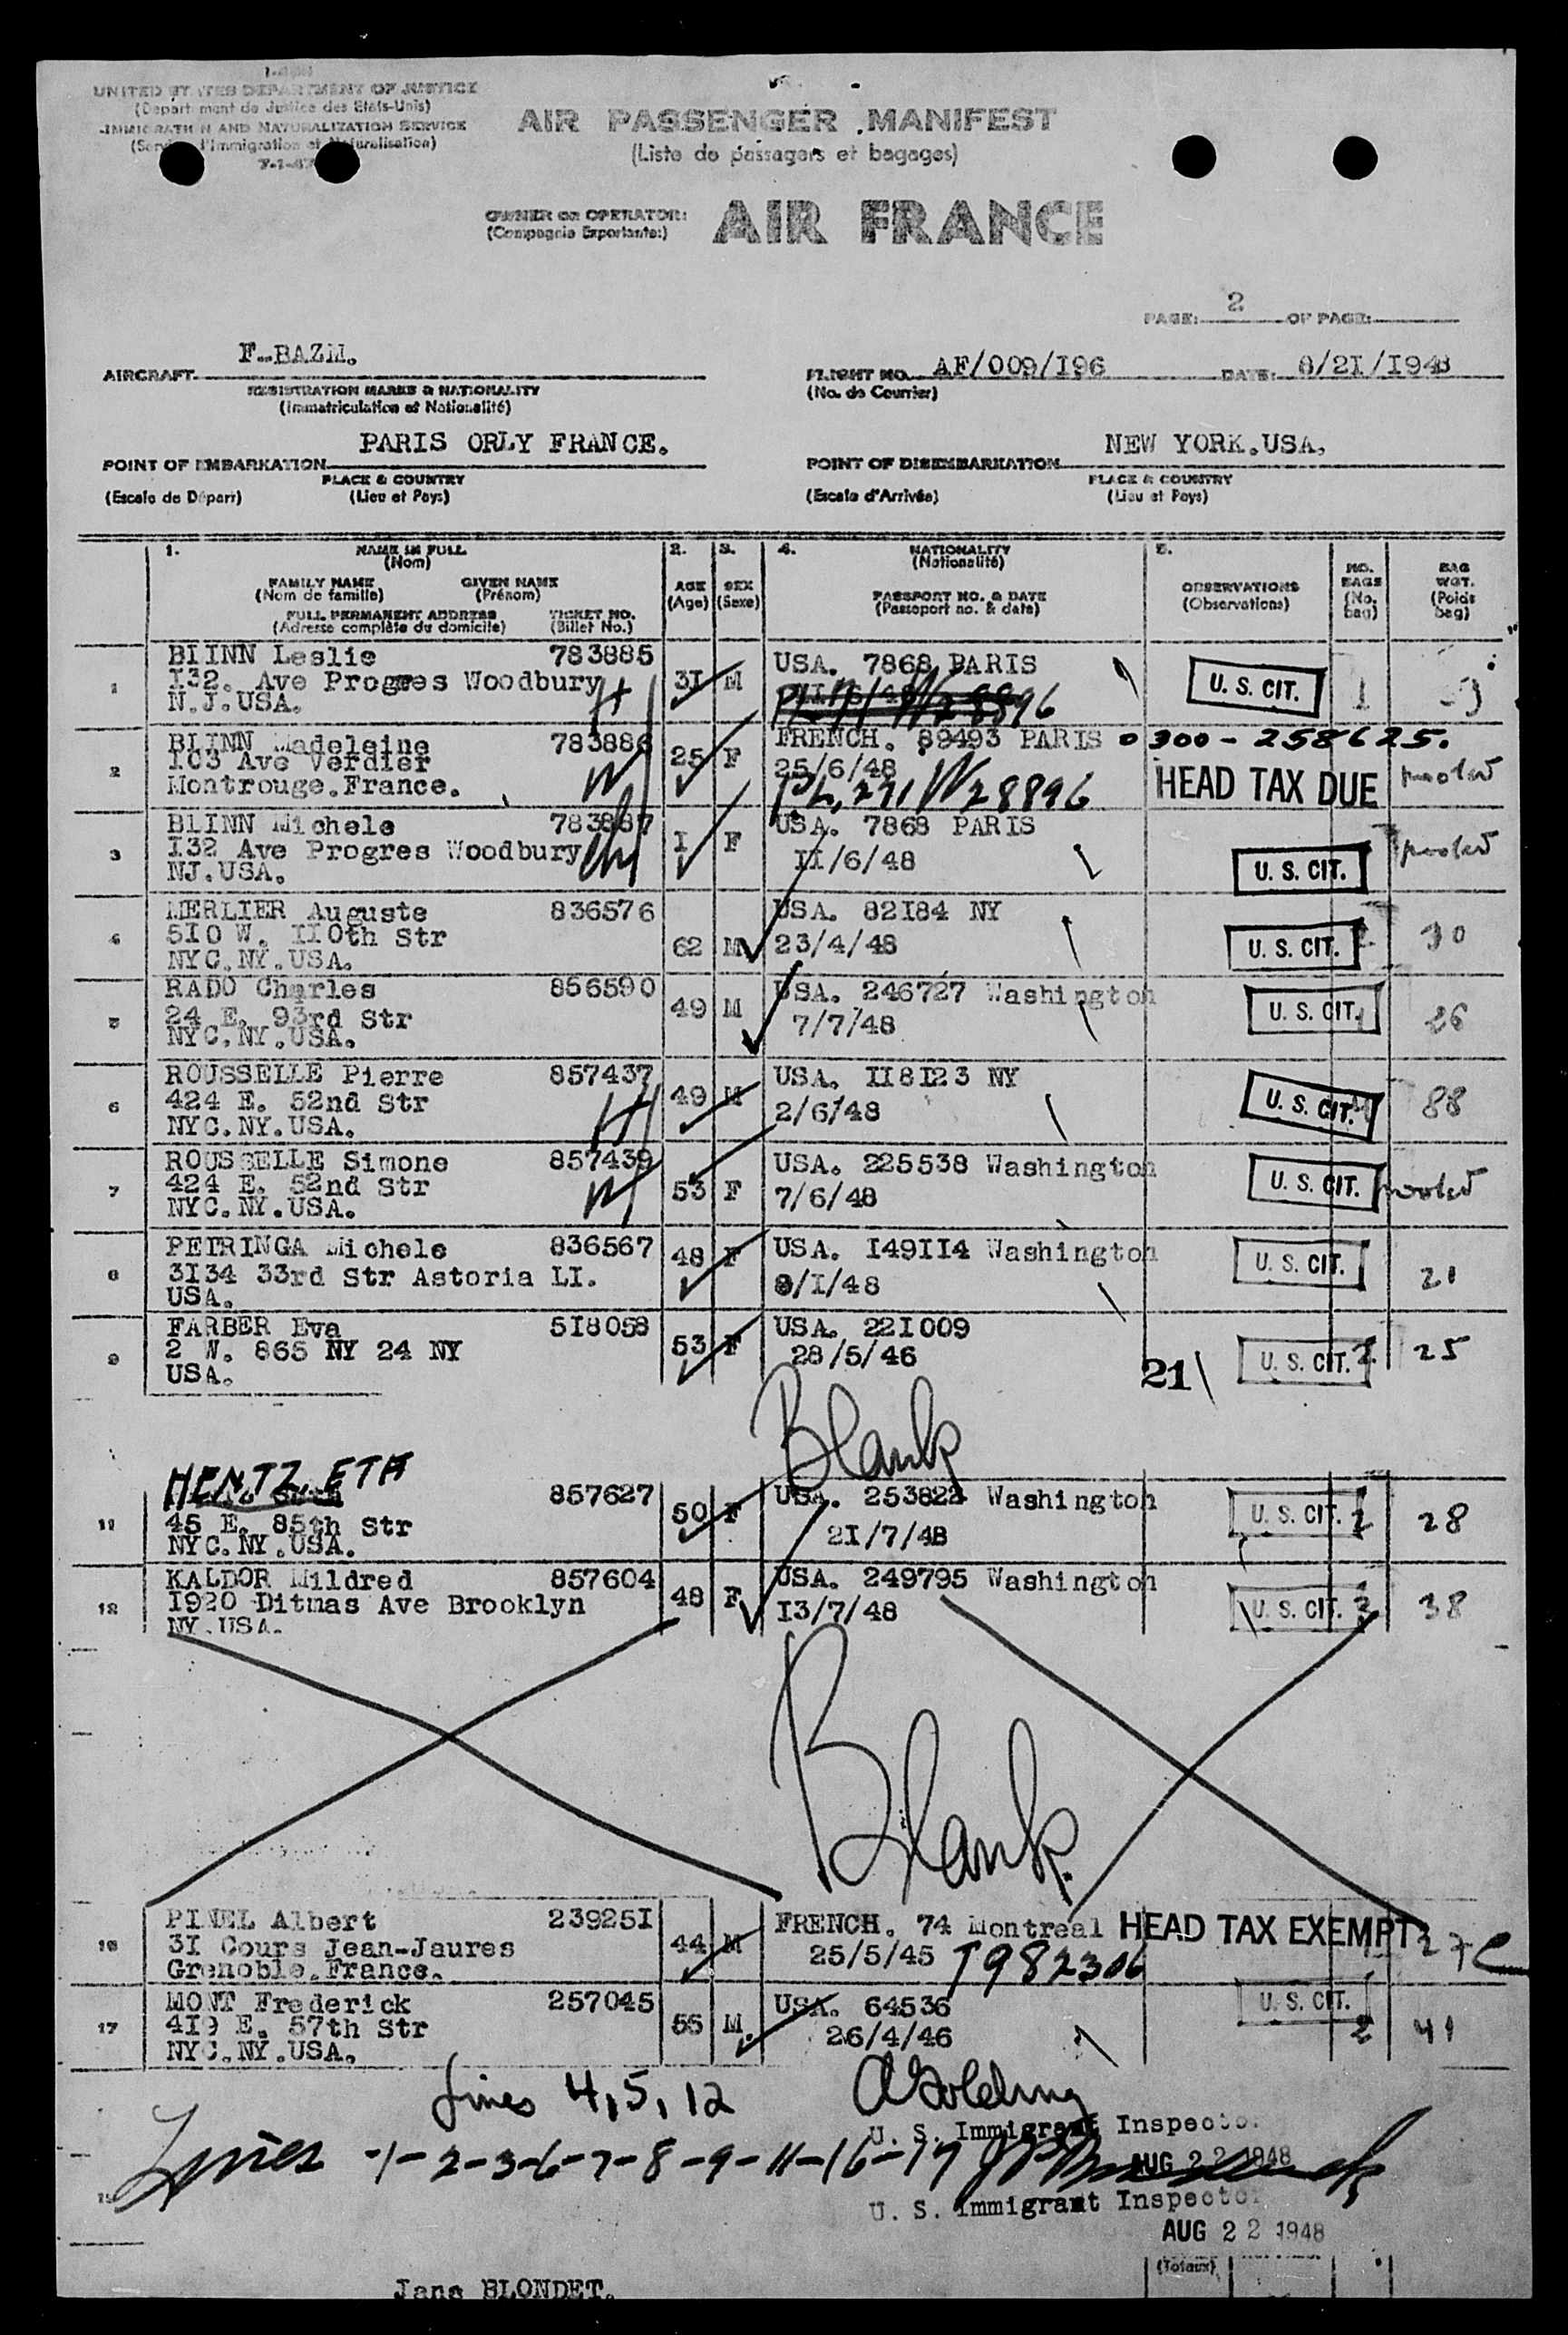 UNITED STATES DEPARTMENT OF JUSTICE
(Départment de Justice des Etats-Unis)
IMMIGRATION AND NATURALIZATION SERVICE
AIR PASSENGER MANIFEST
(Liste de passagers et bagages)
OWNER OR OPERATOR:
(Compagnie Exportante:)
AIR FRANCE
PAGE: 2 OF PAGE:
AIRCRAFT F-BAZM.
REGISTRATION MARKS & NATIONALITY
(Immatriculation et Nationalité)
FLIGHT NO. AF/009/I96 DATE: 8/2I/I948
(No. de Courrier)
POINT OF EMBARKATION PARIS ORLY FRANCE.
PLACE & COUNTRY
(Escale de Départ) (Lieu et Pays)
POINT OF DISEMBARKATION NEW YORK.USA.
PLACE & COUNTRY
(Escale d'Arrivée) (Lieu et Pays)
1. NAME IN FULL 2. 3. 4. NATIONALITY 5.
(Nom) (Nationalité)
FAMILY NAME GIVEN NAME AGE SEX PASSPORT NO. & DATE OBSERVATIONS NO. BAGS BAG WGT.
(Nom de famille) (Prénom) (Age) (Sexe) (Passeport no. & date) (Observations) (No. bag) (Poids bag)
FULL PERMANENT ADDRESS TICKET NO.
(Adresse complète du domicile) (Billet No.)
1 BIINN Leslie 783885 3I M USA. 7868 PARIS U. S. CIT. 1
I32. Ave Progres Woodbury
N.J.USA.
2 BLINN Madeleine 783886 25 F FRENCH. 89493 PARIS 0300-258625.
I03 Ave Verdier 25/6/48 HEAD TAX DUE pooled
Montrouge.France. P.L. 271 W28896
3 BLINN Michele 783887 I F USA. 7868 PARIS pooled
I32 Ave Progres Woodbury II/6/48 U. S. CIT.
NJ.USA.
4 MERLIER Auguste 836576 62 M USA. 82I84 NY
5I0 W. II0th Str 23/4/48 U. S. CIT. 30
NYC.NY.USA.
5 RADO Charles 856590 49 M USA. 246727 Washington
24 E. 93rd Str 7/7/48 U. S. CIT. 26
NYC.NY.USA.
6 ROUSSELLE Pierre 857437 49 M USA. II8I23 NY
424 E. 52nd Str 2/6/48 U. S. CIT. 88
NYC.NY.USA.
7 ROUSSELLE Simone 857439 53 F USA. 225538 Washington
424 E. 52nd Str 7/6/48 U. S. CIT. pooled
NYC.NY.USA.
8 PEIRINGA Michele 836567 48 F USA. I49II4 Washington
3I34 33rd Str Astoria LI. 9/I/48 U. S. CIT. 21
USA.
9 FARBER Eva 5I8058 53 F USA. 22I009
2 W. 865 NY 24 NY 28/5/46 U. S. CIT. 2 25
USA. 21
Blank
HENTZ, ETA
11 857627 50 F USA. 253822 Washington U. S. CIT. 2 28
45 E. 85th Str 2I/7/48
NYC.NY.USA.
12 KALDOR Mildred 857604 48 F USA. 249795 Washington
I920 Ditmas Ave Brooklyn I3/7/48 U. S. CIT. 2 38
NY.USA.
Blank.
16 PINEL Albert 23925I 44 M FRENCH. 74 Montreal HEAD TAX EXEMPT
3I Cours Jean-Jaures 25/5/45 T982306 27
Grenoble.France.
17 MONT Frederick 257045 55 M. USA. 64536 U. S. CIT.
4I9 E. 57th Str 26/4/46 2 41
NYC.NY.USA.
Lines 4,5,12 A Golding
U. S. Immigrant Inspector
Lines -1-2-3-6-7-8-9-11-16-17 AUG 22 1948
U. S. Immigrant Inspector
AUG 22 1948
(Totaux)
Jana BLONDET.